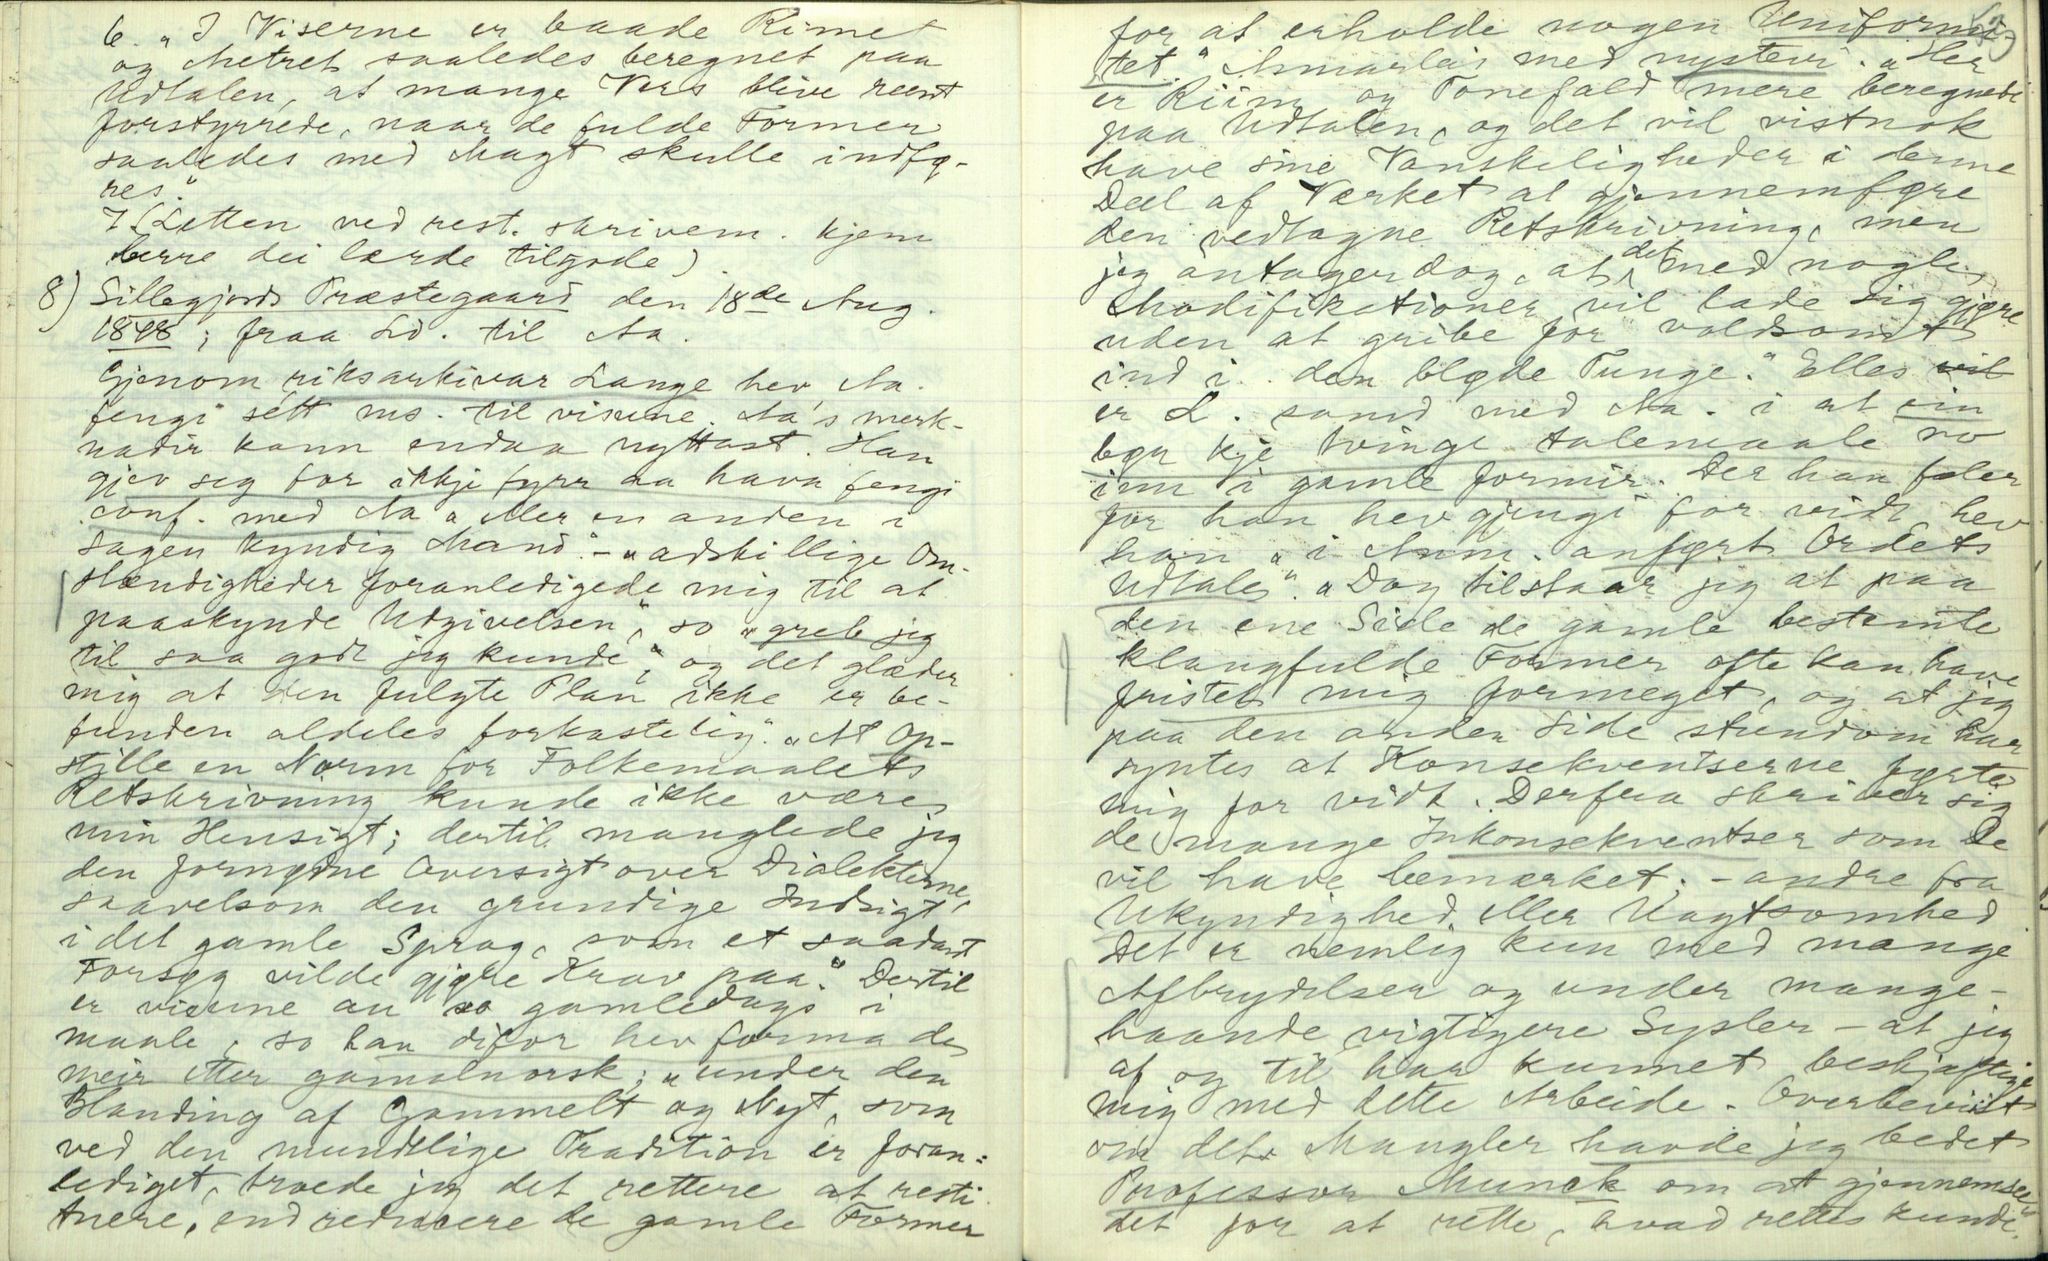 6. „I Viserne er baade Rimet
og Metret saaledes beregnet paa
Udtalen, at mange Vers blive reent
forstyrrede, naar de fulde Former
saaledes med Magt skulle indfø-
res."
7. (Letten ved rest. skrivem. kjem
berre dei lærde tilgode)
8) Sillegjords Præstegaard den 18de Aug.
1848; fraa Ld. til Aa.
Gjenom riksarkivar Lange hev Aa.
fengi sétt ms. til visune. Aa's merk-
nadir kann endaa nyttast. Han
gjev seg for ikkje fyrr aa hava fengi
conf. med Aa „eller en anden i
Sagen kyndig Mand". - „adskillige Om-
stændigheder foranledigede mig til at
paaskynde Udgivelsen", so „greb jeg
til saa godt jeg kunde", „og det glæder
mig at den fulgte Plan ikke er be-
funden aldeles forkastelig". „At Op-
stille en Norm for Folkemaalets
Retskrivning kunde ikke være
min Hensigt; dertil manglede jeg
den fornødne Oversigt over Dialekterne,
saavelsom den grundige Indsigt
i det gamle Sprog, som et saadant
Forsøg vilde gjøre Krav paa." Dertil
er visune au so gamledags i
maale, so han difor hev forma de
meir etter gamalnorsk; „under den
Blanding af Gammelt og Nyt, som
ved den mundtlige Tradition er foran-
lediget, troede jeg det rettere at resti-
tuere, end reducere de gamle Former
for at erholde nogen Uniformi-
tet". Annarleis med nystevi. „Her
er Riim og Tonefald mere beregnede
paa Udtalen, og det vil vistnok
have sine Vanskeligheder i denne
Deel af Værket at gjennemføre
den vedtagne Retskrivning, men
jeg antager dog, at det med nogle
Modifikationer vil lade sig gjøre
uden at gribe for voldsomt
ind i .. den bløde Tunge." Elles vil
er L. samd med Aa. i at ein
bør kje tvinge talemaale no
inn i gamle formir. Der han føler
for han hev gjengi for vidt hev
han „i Anm. anført Ordets
Udtale". „Dog tilstaar jeg at paa
den ene Side de gamle bestemte
klangfulde Former ofte kan have
fristet mig formeget, og at jeg
paa den anden Side stundom har
syntes at Konsekventserne førte
mig for vidt. Derfra skriver sig
de mange Inkonsekventser som De
vil have bemærket; - andre fra
Ukyndighed eller Uagtsomhed
Det er nemlig kun med mange
Afbrydelser og under mange-
haande vigtigere Sysler - at jeg
af og til har kunnet beskjæftige
mig med dette Arbeide. Overbeviist
om dets Mangler havde jeg bedet
Professor Munck om at gjennemsee
det for at rette, hvad rettes kunde.